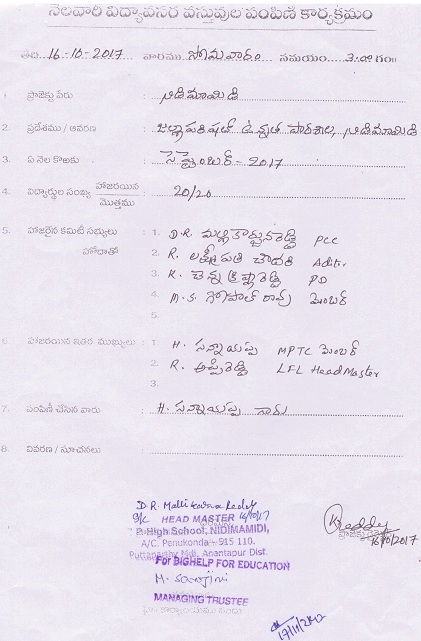 నెలవారీ విద్యావసర వస్తువుల పంపిణీ కార్యక్రమం
తేది. 16-10-2017 వారము సోమవారం సమయం. 3:00 గం॥
1. ప్రాజెక్టు పేరు : నిడిమామిడి
2. ప్రదేశము / ఆవరణ : జిల్లాపరిషత్ ఉన్నత పాఠశాల, నిడిమామిడి
3. ఏ నెల కొఱకు : సెప్టెంబర్ - 2017
4. విద్యార్థుల సంఖ్య హాజరయిన / మొత్తము : 20/20
5. హాజరైన కమిటీ సభ్యులు హోదాతో : 1. D.R. మల్లికార్జునరెడ్డి PCC
2. R. లక్ష్మీపతి చౌదరి
3. K. చెన్నక్రిష్ణారెడ్డి PD
4. M.S. గోపాల్ రావు మెంబర్
5.
6. హాజరయిన ఇతర ముఖ్యులు : 1. H. సన్నాయప్ప MPTC మెంబర్
2. R. అప్పిరెడ్డి LFL HeadMaster
3.
7. పంపిణీ చేసిన వారు : H. సన్నాయప్ప గారు
8. వివరణ / సూచనలు :
D.R. Mallikarjuna Reddy
HEAD MASTER 16/10/17
P. High School, NIDIMAMIDI,
A/C. Penukonda - 515 110.
Puttaparthy Mdl, Anantapur Dist.
For BIGHELP FOR EDUCATION
M. Sarojini
MANAGING TRUSTEE
KReddy
16/10/2017